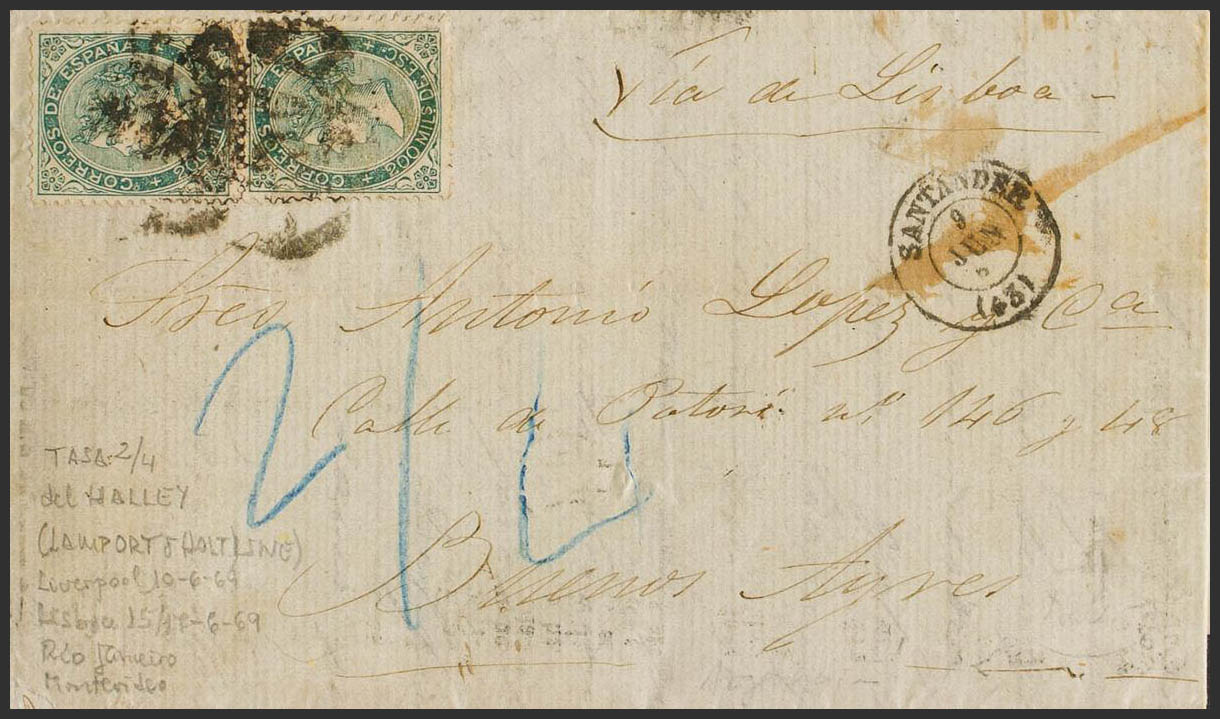 CORREOS DE ESPAÑA
200 MILS DE ESCO
CORREOS DE ESPAÑA
200 MILS DE ESCO
Vía de Lisboa
SANTANDER
9
JUN
(43)
Antonio Lopez y Ca
Calle de Potosi nº 146 y 48
Buenos Ayres
2/
TASA: 2/4
del HALLEY
(LAMPORT & HOLT LINE)
Liverpool 10-6-69
Lisboa 15/ -6-69
Río Janeiro
Montevideo